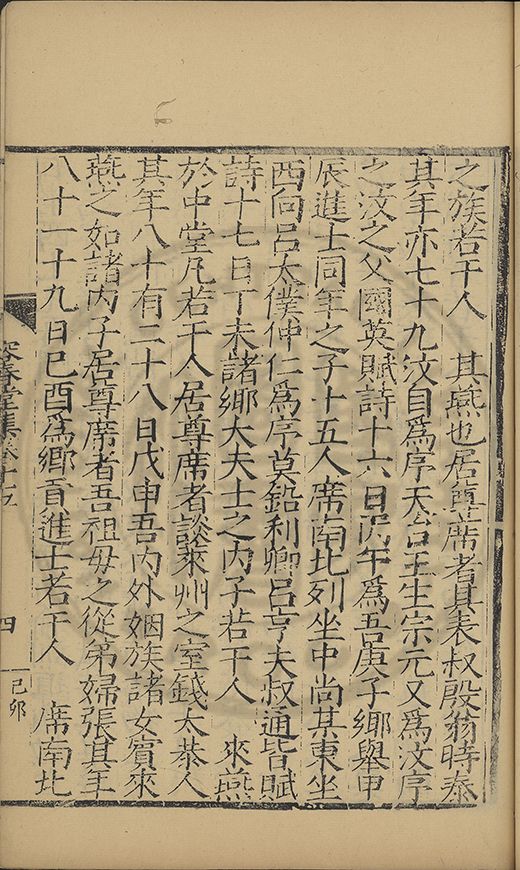 之族若干人　其燕也居尊席者其表叔殷翁時泰
其年亦七十九汶自爲序天台王生宗元又爲汶序
之汶之父國英賦詩十六日丙午爲吾庚子鄉舉甲
辰進士同年之子十五人席南北列坐中尚其東坐
西向吕太僕仲仁爲序莫鉛利卿吕亨夫叔通皆賦
詩十七日丁未諸鄉大夫士之内子若干人　來燕
於中堂凡若干人居尊席者談萊州之室錢太恭人
其年八十有二十八日戊申吾内外姻族諸女賓來
燕之如諸内子居尊席者吾祖母之從弟婦張其年
八十一十九日己酉爲鄉貢進士若干人　席南北
容春堂集卷十五
四
己卯